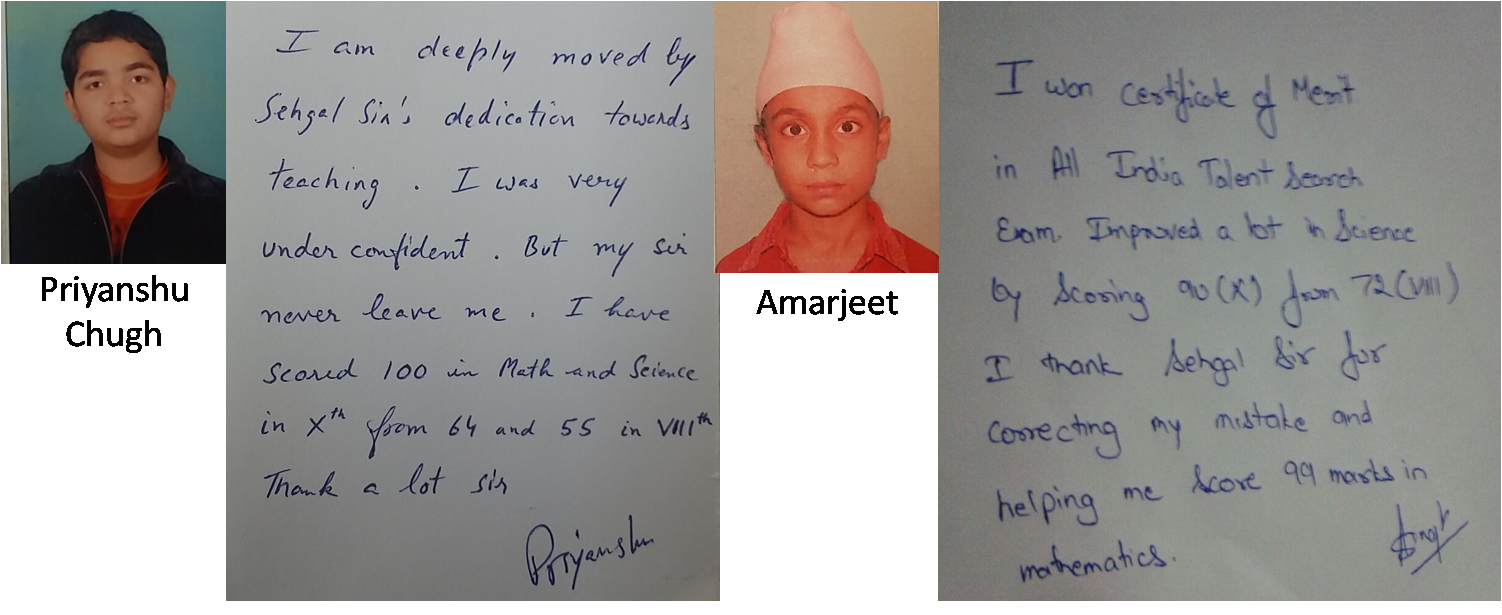 Priyanshu
Chugh
I am deeply moved by
Sehgal Sir's dedication towards
teaching . I was very
under confident . But my sir
never leave me . I have
scored 100 in Math and Science
in Xth from 64 and 55 in VIIIth
Thank a lot sir
Priyanshu
Amarjeet
I won Certificate of Merit
in All India Talent Search
Exam. Improved a lot in Science
by Scoring 90 (X) from 72 (VIII)
I thank Sehgal Sir for
correcting my mistake and
helping me score 99 marks in
mathematics.
Singh